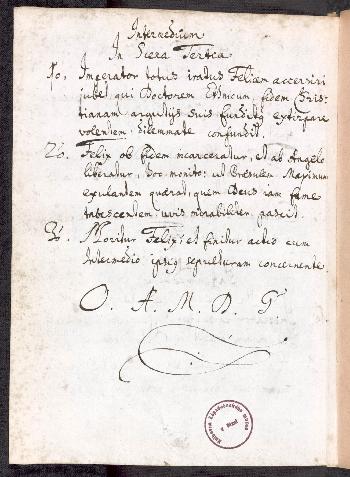 Intermedium
In Scena Tertia
1o. Imperator totus iratus Felicem accersiri
jubet, qui Doctorem Ethnicum, fidem Chris-
tianam argutijs suis funditus extirpare
volentem, dilemmate confundit.
2o. Felix ob fidem incarceratur, et ab Angelo
liberatur, hoc monito: ut Præsulem Maximum
exulantem quærat, quem Deus iam fame
tabescentem, uvis mirabiliter pascit.
3o. Moritur Felix, et finitur actus cum
Intermedio ipsius sepulturam concernente.
O. A. M. D. G.